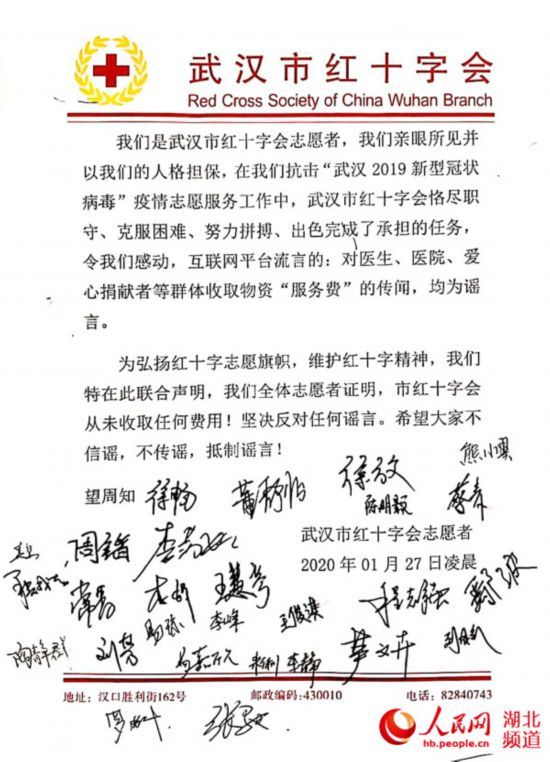 武汉市红十字会
Red Cross Society of China Wuhan Branch
我们是武汉市红十字会志愿者，我们亲眼所见并
以我们的人格担保，在我们抗击“武汉 2019 新型冠状
病毒”疫情志愿服务工作中，武汉市红十字会恪尽职
守、克服困难、努力拼搏、出色完成了承担的任务，
令我们感动，互联网平台流言的：对医生、医院、爱
心捐献者等群体收取物资“服务费”的传闻，均为谣
言。
为弘扬红十字志愿旗帜，维护红十字精神，我们
特在此联合声明，我们全体志愿者证明，市红十字会
从未收取任何费用！坚决反对任何谣言。希望大家不
信谣，不传谣，抵制谣言！
望周知 徐畅
武汉市红十字会志愿者
2020 年 01 月 27 日凌晨
李峰
李静
地址：汉口胜利街162号 邮政编码:430010 电话：82840743
人民网 湖北
频道
hb.people.cn